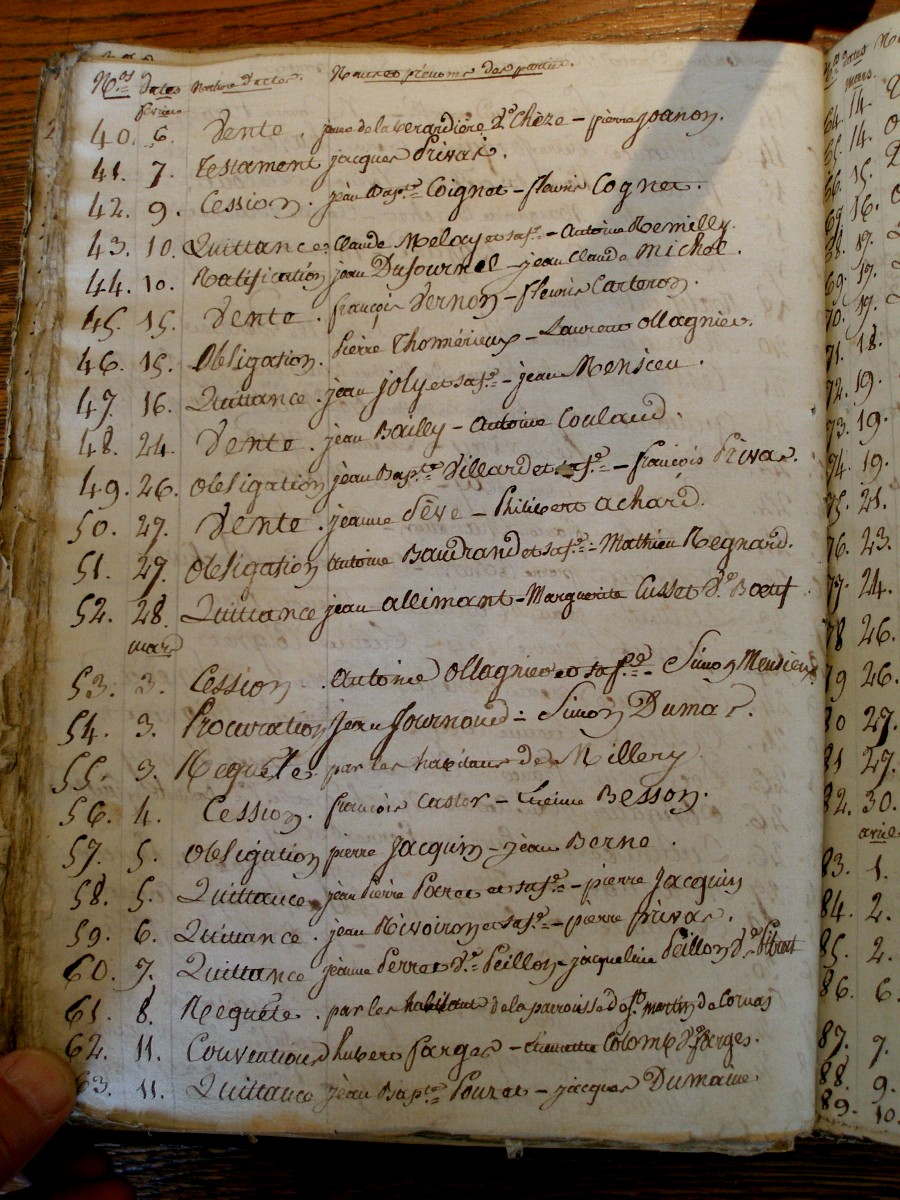 Nos Dates Nature d'actes. Noms et prénoms des parties.
février
40. 6. Vente. de la verandière de. Chèze - pierre joanon.
41. 7. Testament jacques Privas.
42. 9. Cession. jean Bapte. Coignet - fleurie Cognet.
43. 10. Quittance. Claude Melay et sa fe. - Antoine Remilly.
44. 10. Ratification jean Dufournel - jean Claude Michel.
45. 15. Vente. françois Vernon - fleurie Carteron.
46. 15. Obligation. Pierre Thomérieux - Laurent ollagnier.
47. 16. Quittance. jean joly et sa fe. - jean Mensieu.
48. 24. Vente. jean Bailly - Antoine Coulaud.
49. 26. obligation jean Bapte. Villard et sa fe. - françois Privas.
50. 27. Vente. jeanne Sève - Philibert achard.
51. 27. Obligation antoine Baudrand et sa fe. - Mathieu Regnard.
52. 28. Quittance jean allimant - Marguerite Cusset de. Boeuf
mars
53. 3. Cession. Antoine Ollagnier et sa fe. - Simon Mensieux
54. 3. Procuration jean fournoud - Simon Dumas.
55. 3. Requête. par les habitans de Millery
56. 4. Cession. françois Castor - Besson.
57. 5. obligation pierre Jacquin - jean Berne.
58. 5. Quittance. jean Pierre Poret et sa fe. - pierre Jacquin
59. 6. Quittance. jean Rivoiron et sa fe. - pierre privas.
60. 7. Quittance jeanne Perret de. Peillon - jacqueline Peillon de.
61. 8. Requête. par les habitant de la paroisse de st. martin de Cornas
62. 11. Convention hubert farges - Colomb de. farges.
63. 11. Quittance jean Bapte. Pouret - jacques Dumaine
mars.
64. 14.
65. 14.
66. 15.
67. 16.
68. 17.
69. 17.
70. 17.
71. 18.
72. 19.
73. 19.
74. 19.
75. 21.
76. 23.
77. 24.
78 26.
79 26.
80 27.
81 27.
82. 30.
avril
83. 1.
84. 2.
85. 2.
86. 6.
87. 7.
88. 9.
89. 10.